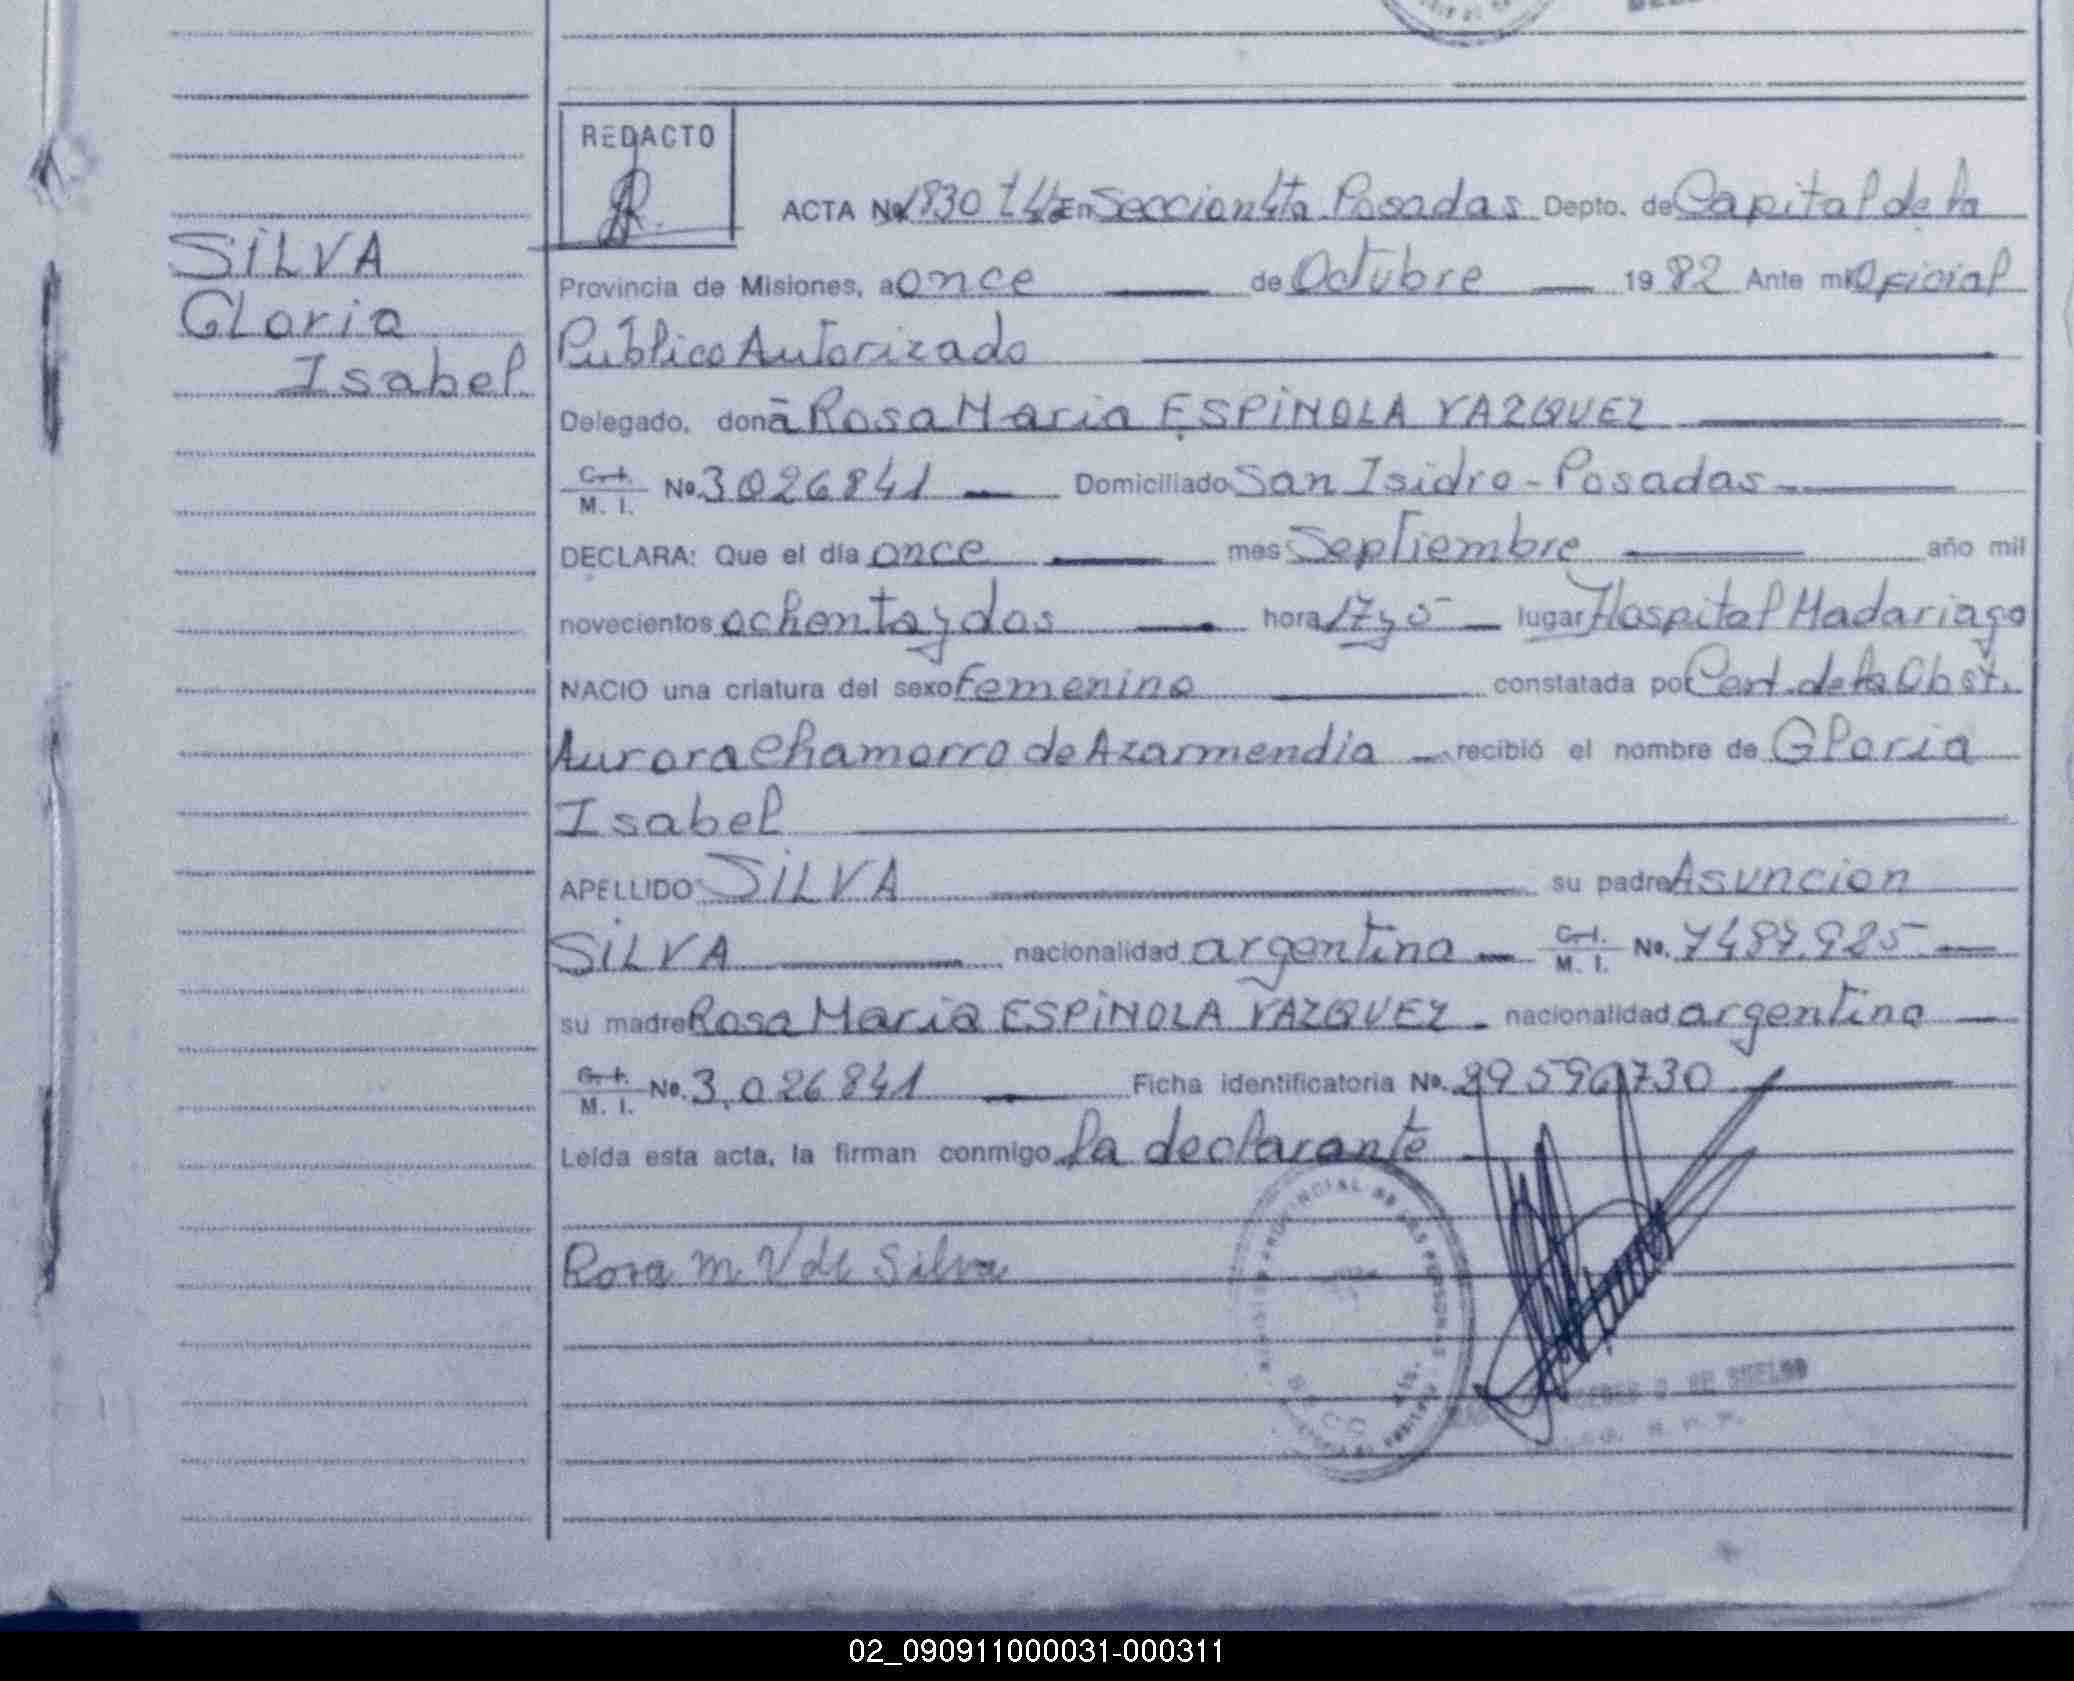 REDACTO
ACTA No 1830 t 4 En Seccion 4ta Posadas Depto. de Capital de la
SILVA
Gloria
Isabel
Provincia de Misiones, a once de Octubre 1982 Ante mi Oficial
Público Autorizado
Delegado, donã Rosa Maria ESPINOLA VAZQUEZ
C. I. M. I. No. 3026841 Domiciliado San Isidro - Posadas
DECLARA: Que el día once mes Septiembre año mil
novecientos ochenta y dos hora 17 y 5 lugar Hospital Madariaga
NACIO una criatura del sexo femenino constatada por Cert. de la Obst.
Aurora Chamorro de Azarmendia recibió el nombre de Gloria
Isabel
APELLIDO SILVA su padre Asuncion
SILVA nacionalidad argentina C. I. M. I. No. 7487.925
su madre Rosa Maria ESPINOLA VAZQUEZ nacionalidad argentina
C. I. M. I. No. 3.026841 Ficha identificatoria No. 29596730
Leída esta acta, la firman conmigo la declarante
Rosa M V de Silva
PROVINCIAL DE LAS PERSONAS
DE
02_090911000031-000311